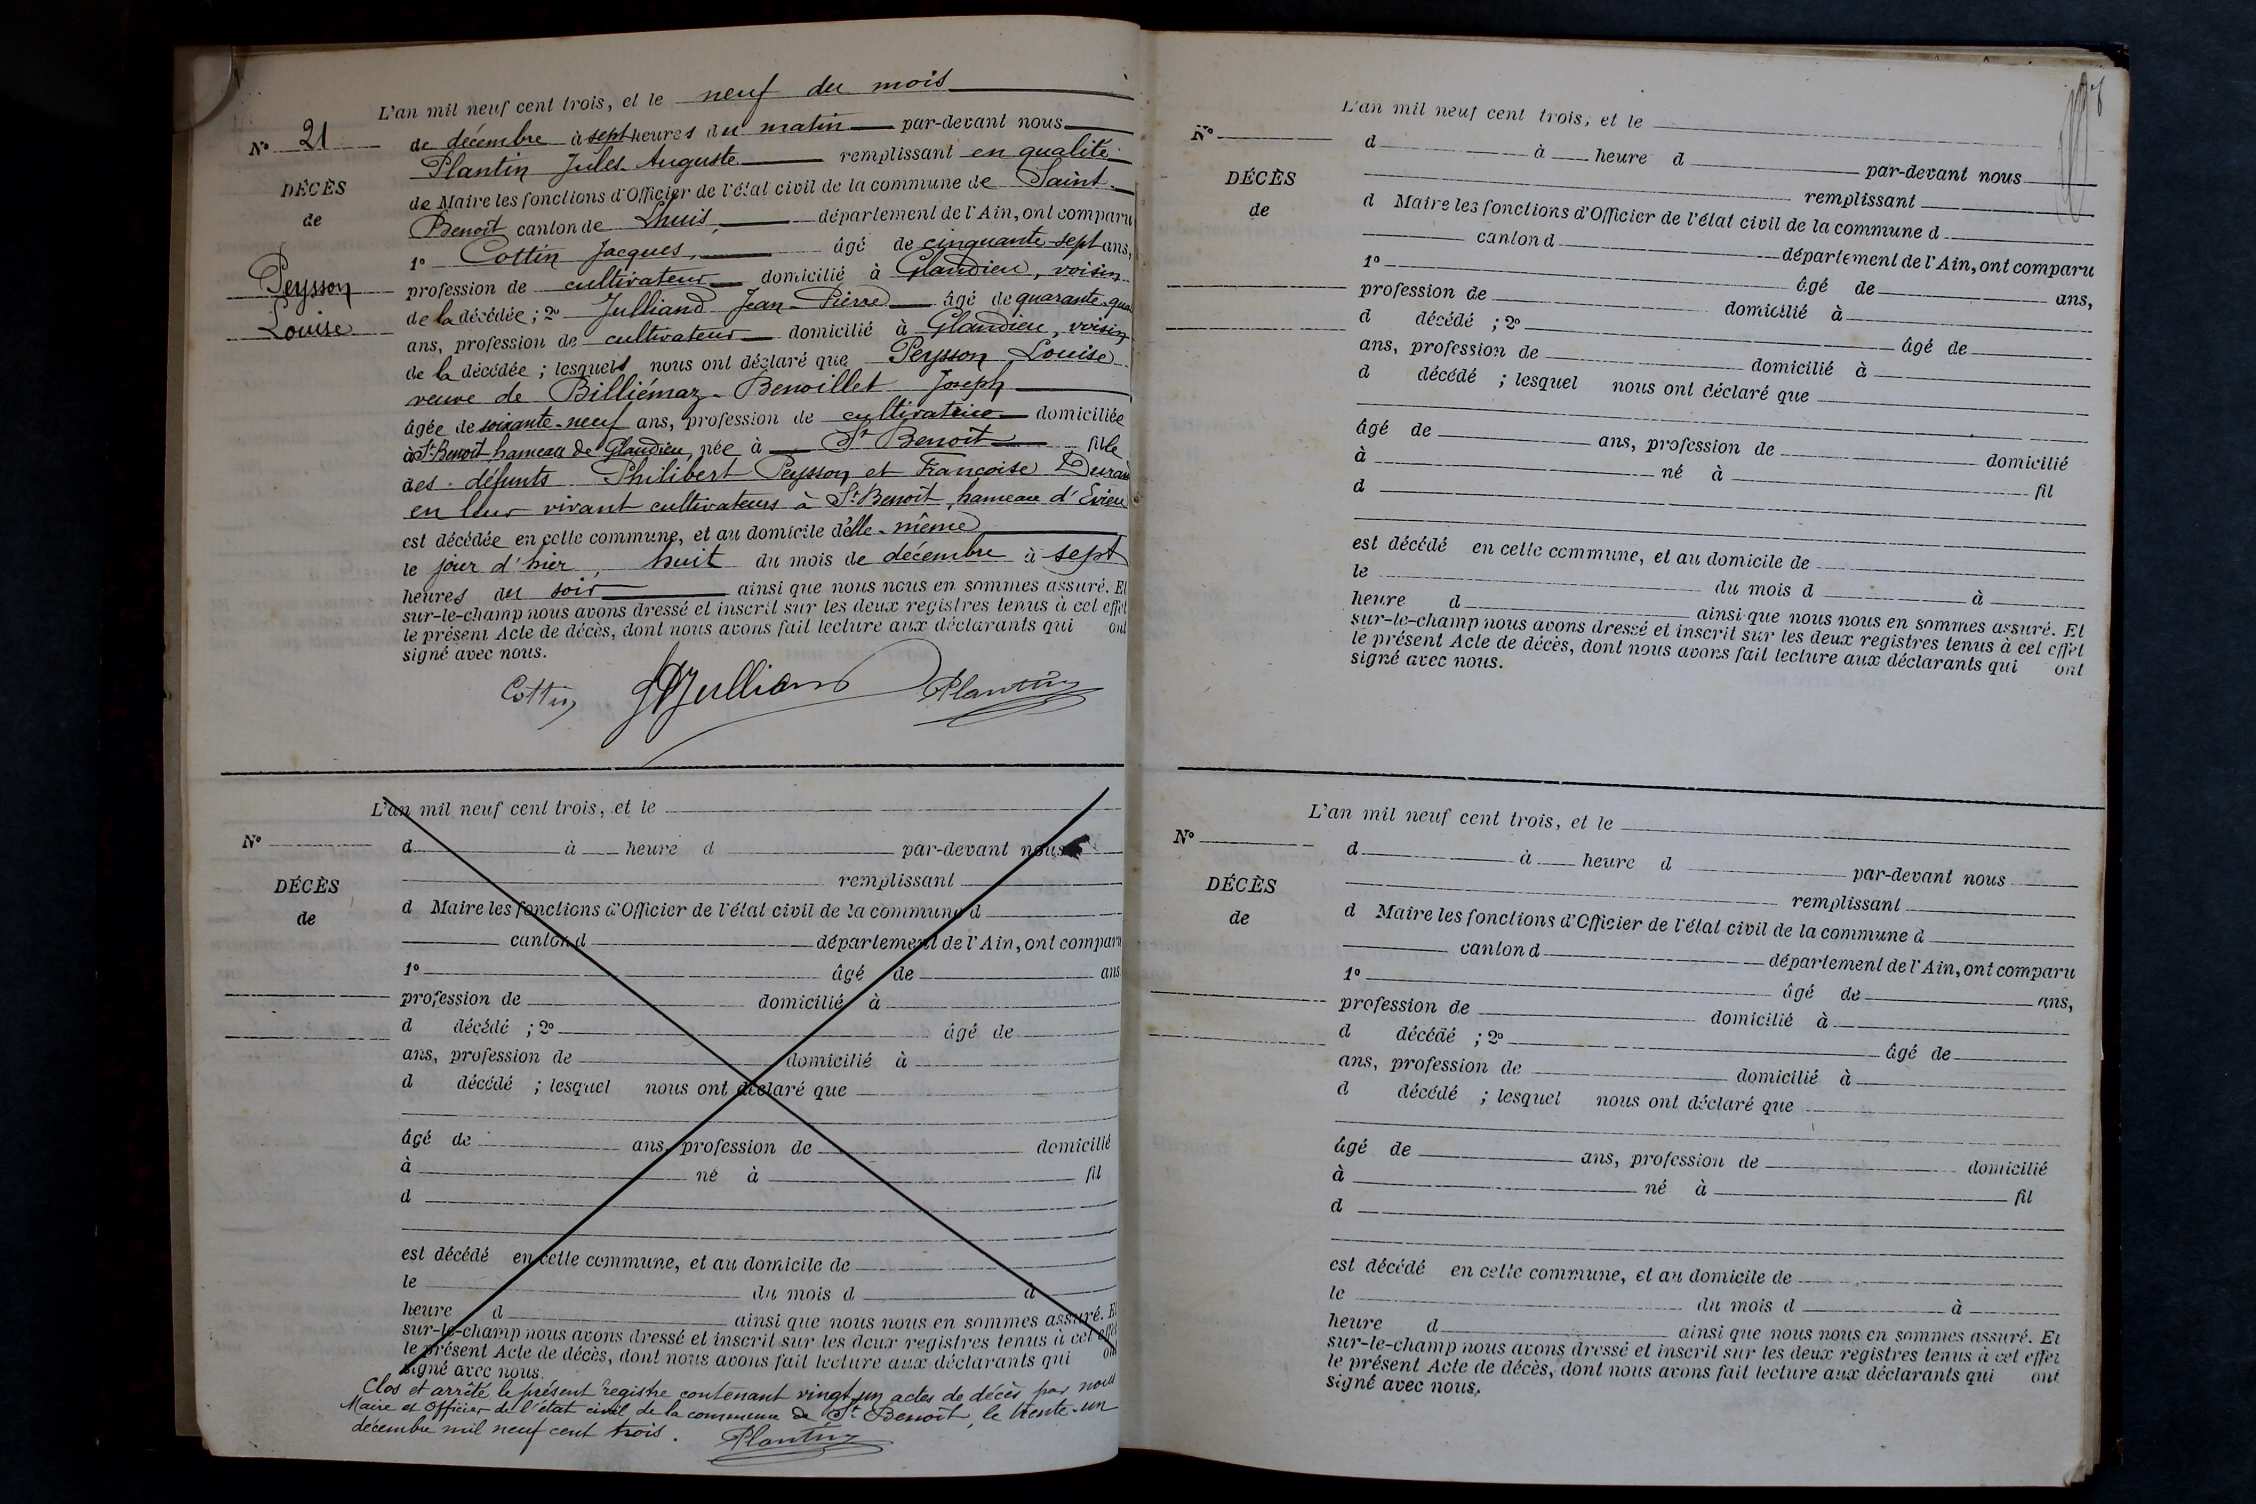 L'an mil neuf cent trois, et le neuf du mois
N° 21
de décembre à sept heures du matin par-devant nous
Plantin Jules Auguste remplissant en qualité
DÉCÈS
de Maire les fonctions d'Officier de l'état civil de la commune de Saint-
de
Benoît canton de Lhuis, département de l'Ain, ont comparu
1° Cottin Jacques, âgé de cinquante-sept ans,
Peysson
profession de cultivateur domicilié à Glandieu, voisin
Louise
de la décédée ; 2° Julliand Jean-Pierre âgé de quarante-qua
ans, profession de cultivateur domicilié à Glandieu, voisin
de la décédée ; lesquels nous ont déclaré que Peysson Louise
veuve de Billiémaz-Benoillet Joseph
âgée de soixante-neuf ans, profession de cultivatrice domiciliée
à St Benoît hameau de Glandieu, née à St Benoît fille
des défunts Philibert Peysson et Françoise Durand
en leur vivant cultivateurs à St Benoît, hameau d'Evieu
est décédée en cette commune, et au domicile d'elle-même
le jour d'hier, huit du mois de décembre à sept
heures du soir ainsi que nous nous en sommes assuré. Et
sur-le-champ nous avons dressé et inscrit sur les deux registres tenus à cet effet
le présent Acte de décès, dont nous avons fait lecture aux déclarants qui ont
signé avec nous.
Cottin JPJulliand Plantin
L'an mil neuf cent trois, et le
N°
d à heure d par-devant nous
remplissant
DÉCÈS
d Maire les fonctions d'Officier de l'état civil de la commune d
de
canton d département de l'Ain, ont comparu
1° âgé de ans
profession de domicilié à
d décédé ; 2° âgé de
ans, profession de domicilié à
d décédé ; lesquel nous ont déclaré que
âgé de ans, profession de domicilié
à né à fil
d
est décédé en cette commune, et au domicile de
le du mois d à
heure d ainsi que nous nous en sommes assuré. Et
sur-le-champ nous avons dressé et inscrit sur les deux registres tenus à cet effet
le présent Acte de décès, dont nous avons fait lecture aux déclarants qui ont
signé avec nous.
Clos et arrêté le présent registre contenant vingt-un actes de décès par nous
Maire et Officier de l'état civil de la commune de St Benoît, le trente-un
décembre mil neuf cent trois. Plantin
L'an mil neuf cent trois, et le
N°
d à heure d par-devant nous
remplissant
DÉCÈS
d Maire les fonctions d'Officier de l'état civil de la commune d
de
canton d département de l'Ain, ont comparu
1° âgé de ans,
profession de domicilié à
d décédé ; 2° âgé de
ans, profession de domicilié à
d décédé ; lesquel nous ont déclaré que
âgé de ans, profession de domicilié
à né à fil
d
est décédé en cette commune, et au domicile de
le du mois d à
heure d ainsi que nous nous en sommes assuré. Et
sur-le-champ nous avons dressé et inscrit sur les deux registres tenus à cet effet
le présent Acte de décès, dont nous avons fait lecture aux déclarants qui ont
signé avec nous.
L'an mil neuf cent trois, et le
N°
d à heure d par-devant nous
remplissant
DÉCÈS
d Maire les fonctions d'Officier de l'état civil de la commune d
de
canton d département de l'Ain, ont comparu
1° âgé de ans,
profession de domicilié à
d décédé ; 2° âgé de
ans, profession de domicilié à
d décédé ; lesquel nous ont déclaré que
âgé de ans, profession de domicilié
à né à fil
d
est décédé en cette commune, et au domicile de
le du mois d à
heure d ainsi que nous nous en sommes assuré. Et
sur-le-champ nous avons dressé et inscrit sur les deux registres tenus à cet effet
le présent Acte de décès, dont nous avons fait lecture aux déclarants qui ont
signé avec nous.